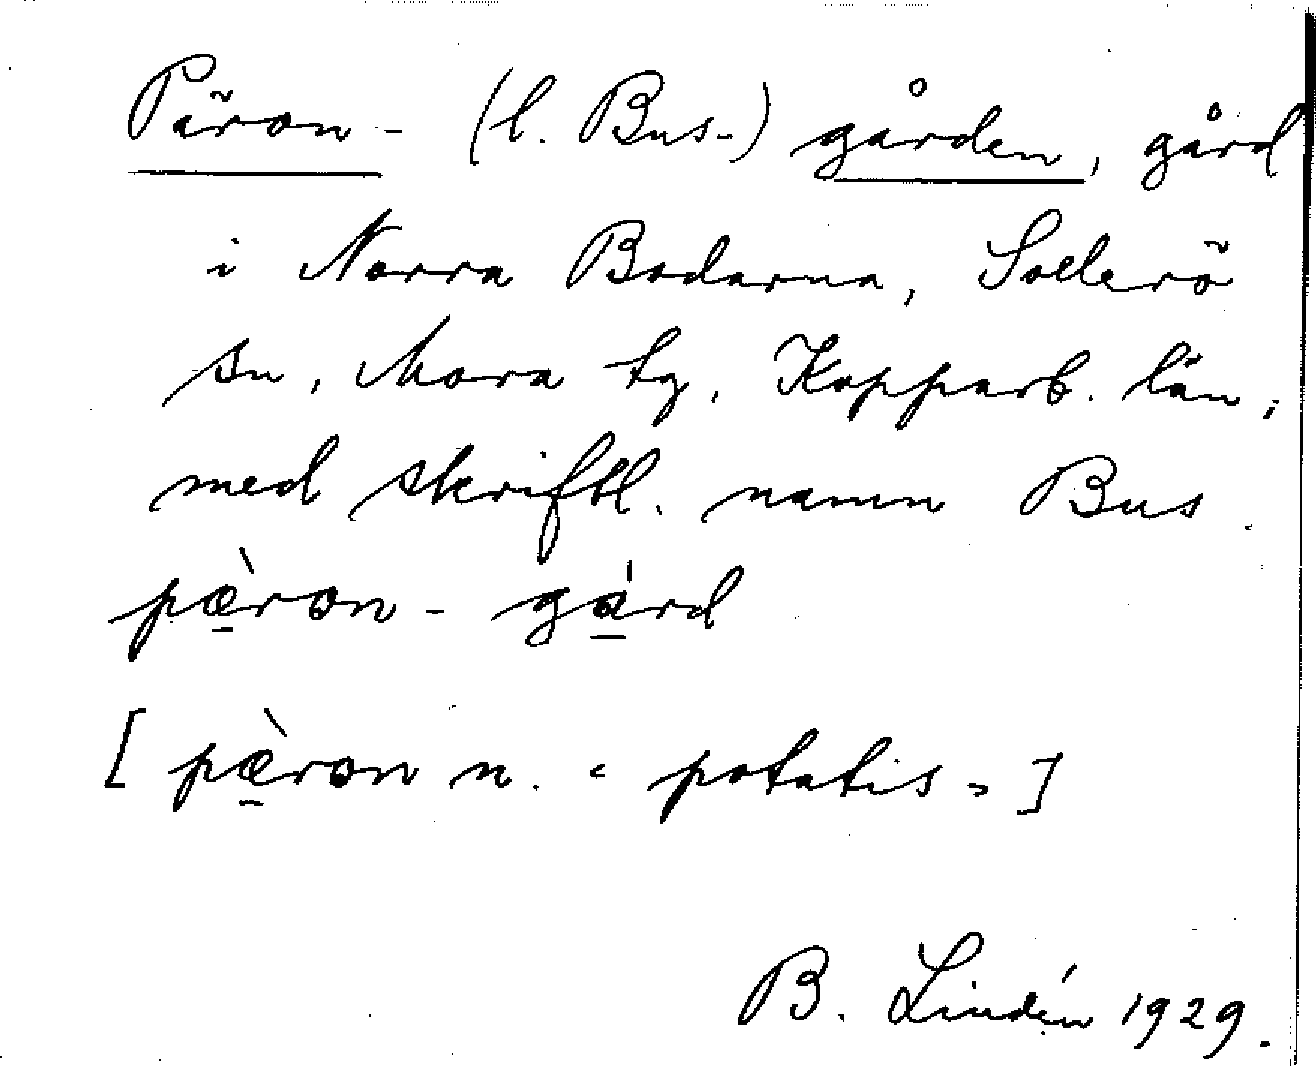 Päron- (l. Bus-) gården, gård
i Norra Bodarna, Sollerö
sn, Mora tg, Kopparb. län,
med skriftl. namn Bus.
pæ̱̀ron - gá̱rd
[ pæ̱̀ron n. "potatis" ]
B. Lindén 1929.